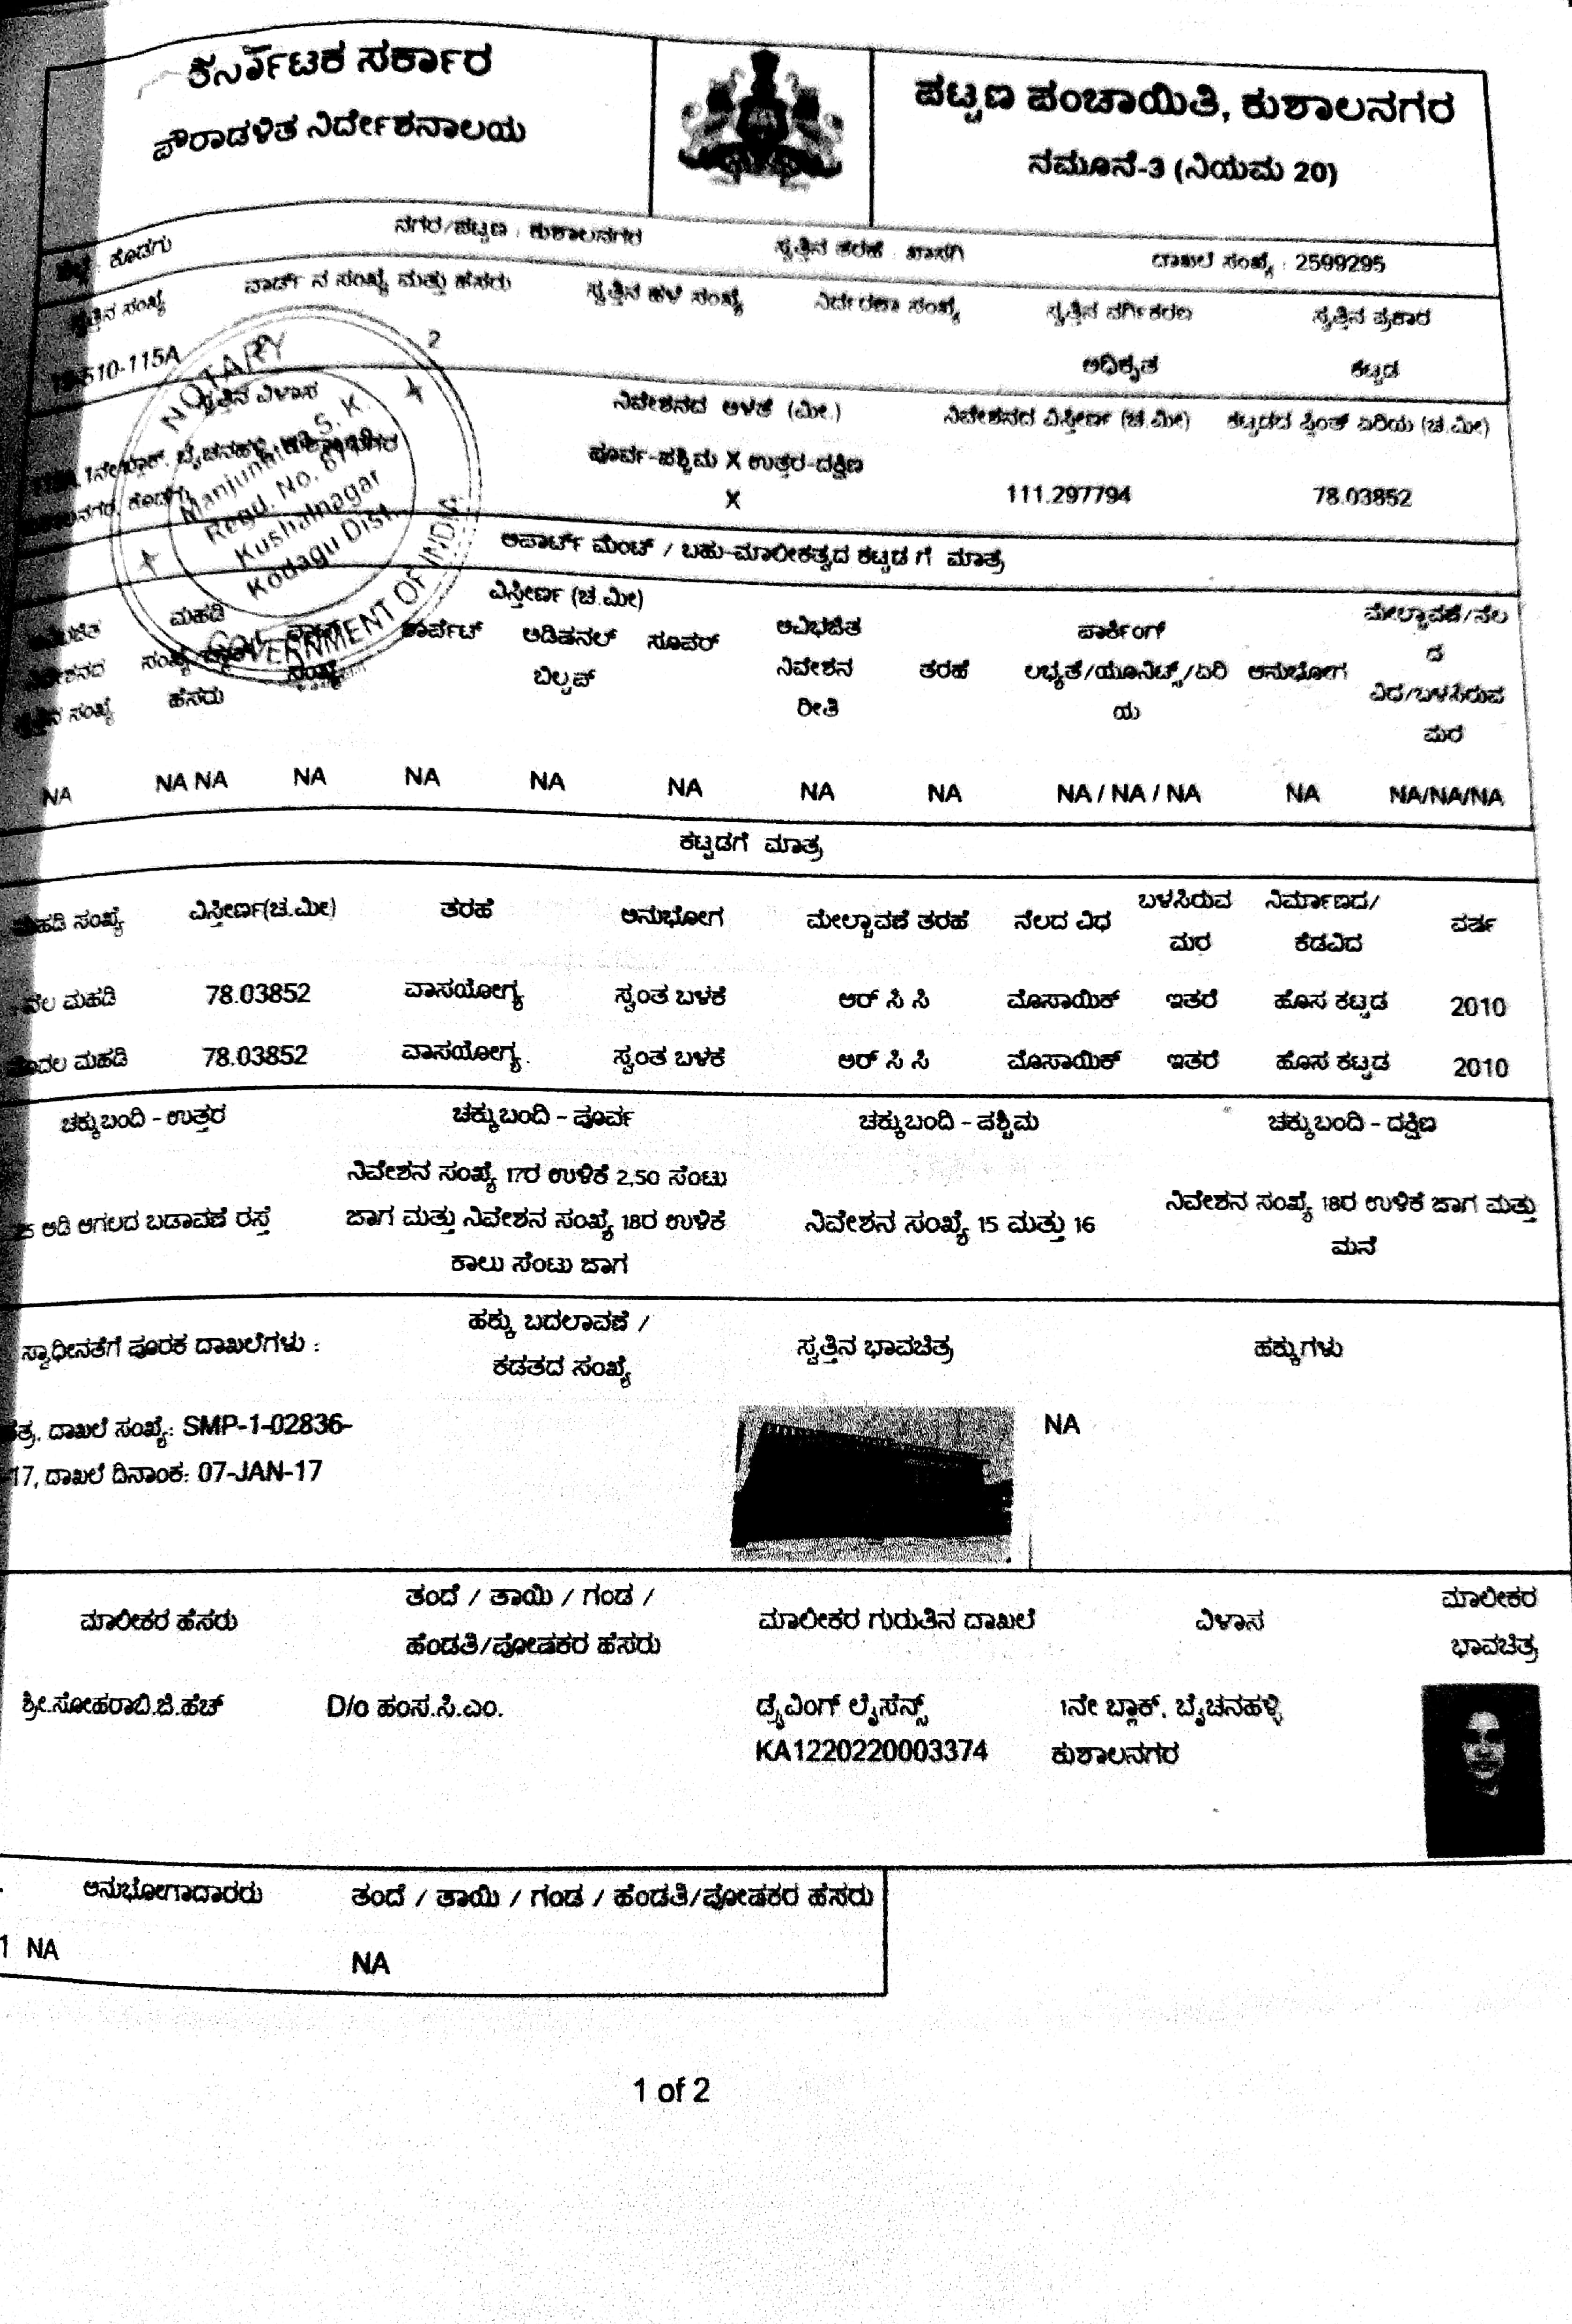 ಕರ್ನಾಟಕ ಸರ್ಕಾರ
ಪೌರಾಡಳಿತ ನಿರ್ದೇಶನಾಲಯ
ಪಟ್ಟಣ ಪಂಚಾಯಿತಿ, ಕುಶಾಲನಗರ
ನಮೂನೆ-3 (ನಿಯಮ 20)
ಕೊಡಗು ನಗರ/ಪಟ್ಟಣ : ಕುಶಾಲನಗರ ಸ್ವತ್ತಿನ ತರಹೆ : ಖಾಸಗಿ ದಾಖಲೆ ಸಂಖ್ಯೆ : 2599295
ಸ್ವತ್ತಿನ ಸಂಖ್ಯೆ ವಾರ್ಡ್ ನ ಸಂಖ್ಯೆ ಮತ್ತು ಹೆಸರು ಸ್ವತ್ತಿನ ಹಳೆ ಸಂಖ್ಯೆ ನಿರ್ದೇಶಾ ಸಂಖ್ಯೆ ಸ್ವತ್ತಿನ ವರ್ಗೀಕರಣ ಸ್ವತ್ತಿನ ಪ್ರಕಾರ
510-115A 2 ಅಧಿಕೃತ ಕಟ್ಟಡ
ಸ್ವತ್ತಿನ ವಿಳಾಸ ನಿವೇಶನದ ಅಳತೆ (ಮೀ.) ನಿವೇಶನದ ವಿಸ್ತೀರ್ಣ (ಚ.ಮೀ) ಕಟ್ಟಡದ ಪ್ಲಿಂತ್ ಏರಿಯ (ಚ.ಮೀ)
1ನೇ ಬ್ಲಾಕ್, ಬೈಚನಹಳ್ಳಿ, ಪೂರ್ವ-ಪಶ್ಚಿಮ X ಉತ್ತರ-ದಕ್ಷಿಣ
ಕೊಡಗು X 111.297794 78.03852
NOTARY
Manjunatha S. K.
Regd. No.
Kushalnagar
Kodagu Dist.
GOVERNMENT OF INDIA
ಅಪಾರ್ಟ್ ಮೆಂಟ್ / ಬಹು-ಮಾಲೀಕತ್ವದ ಕಟ್ಟಡ ಗೆ ಮಾತ್ರ
ವಿಸ್ತೀರ್ಣ (ಚ.ಮೀ)
ಮಹಡಿ ಕಾರ್ಪೆಟ್ ಅಡಿಷನಲ್ ಸೂಪರ್ ಅವಿಭಜಿತ ಪಾರ್ಕಿಂಗ್ ಮೇಲ್ಚಾವಣಿ/ನೆಲ
ಸಂಖ್ಯೆ ಬಿಲ್ಟಪ್ ನಿವೇಶನ ತರಹೆ ಲಭ್ಯತೆ/ಯೂನಿಟ್ಸ್/ಏರಿ ಅನುಭೋಗ ದ
ಸಂಖ್ಯೆ ಹೆಸರು ರೀತಿ ಯ ವಿಧ/ಬಳಸಿರುವ
ಮರ
NA NA NA NA NA NA NA NA NA NA / NA / NA NA NA/NA/NA
ಕಟ್ಟಡಗೆ ಮಾತ್ರ
ಮಹಡಿ ಸಂಖ್ಯೆ ವಿಸ್ತೀರ್ಣ(ಚ.ಮೀ) ತರಹೆ ಅನುಭೋಗ ಮೇಲ್ಚಾವಣಿ ತರಹೆ ನೆಲದ ವಿಧ ಬಳಸಿರುವ ಮರ ನಿರ್ಮಾಣದ/ ಕೆಡವಿದ ವರ್ಷ
ನೆಲ ಮಹಡಿ 78.03852 ವಾಸಯೋಗ್ಯ ಸ್ವಂತ ಬಳಕೆ ಆರ್ ಸಿ ಸಿ ಮೊಸಾಯಿಕ್ ಇತರೆ ಹೊಸ ಕಟ್ಟಡ 2010
ಮೊದಲ ಮಹಡಿ 78.03852 ವಾಸಯೋಗ್ಯ. ಸ್ವಂತ ಬಳಕೆ ಆರ್ ಸಿ ಸಿ ಮೊಸಾಯಿಕ್ ಇತರೆ ಹೊಸ ಕಟ್ಟಡ 2010
ಚಕ್ಕುಬಂದಿ - ಉತ್ತರ ಚಕ್ಕುಬಂದಿ - ಪೂರ್ವ ಚಕ್ಕುಬಂದಿ - ಪಶ್ಚಿಮ ಚಕ್ಕುಬಂದಿ - ದಕ್ಷಿಣ
ನಿವೇಶನ ಸಂಖ್ಯೆ 17ರ ಉಳಿಕೆ 2,50 ಸೆಂಟು
ಅಡಿ ಅಗಲದ ಬಡಾವಣೆ ರಸ್ತೆ ಜಾಗ ಮತ್ತು ನಿವೇಶನ ಸಂಖ್ಯೆ 18ರ ಉಳಿಕೆ ನಿವೇಶನ ಸಂಖ್ಯೆ 15 ಮತ್ತು 16 ನಿವೇಶನ ಸಂಖ್ಯೆ 18ರ ಉಳಿಕೆ ಜಾಗ ಮತ್ತು
ಕಾಲು ಸೆಂಟು ಜಾಗ ಮನೆ
ಸ್ವಾಧೀನತೆಗೆ ಪೂರಕ ದಾಖಲೆಗಳು : ಹಕ್ಕು ಬದಲಾವಣೆ / ಸ್ವತ್ತಿನ ಭಾವಚಿತ್ರ ಹಕ್ಕುಗಳು
ಕಡತದ ಸಂಖ್ಯೆ
ದಾಖಲೆ ಸಂಖ್ಯೆ: SMP-1-02836- NA
17, ದಾಖಲೆ ದಿನಾಂಕ: 07-JAN-17
ಮಾಲೀಕರ ಹೆಸರು ತಂದೆ / ತಾಯಿ / ಗಂಡ / ಮಾಲೀಕರ ಗುರುತಿನ ದಾಖಲೆ ವಿಳಾಸ ಮಾಲೀಕರ
ಹೆಂಡತಿ/ಪೋಷಕರ ಹೆಸರು ಭಾವಚಿತ್ರ
ಶ್ರೀ.ಸೋಹರಾಬಿ.ಜಿ.ಹೆಚ್ D/o ಹಂಸ.ಸಿ.ಎಂ. ಡ್ರೈವಿಂಗ್ ಲೈಸೆನ್ಸ್ 1ನೇ ಬ್ಲಾಕ್, ಬೈಚನಹಳ್ಳಿ
KA1220220003374 ಕುಶಾಲನಗರ
ಅನುಭೋಗಾದಾರರು ತಂದೆ / ತಾಯಿ / ಗಂಡ / ಹೆಂಡತಿ/ಪೋಷಕರ ಹೆಸರು
1 NA NA
1 of 2